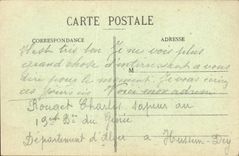 CARTE POSTALE
CORRESPONDANCE
ADRESSE
est très bon Je ne vois plus
grand chose d'intéressant a vous
dire pour le moment Je vais
ces jours ci Voici mon adresse
Rouget Charles sapeur au
19eme Bon du Génie
Département d'Alger a Hussein-Dey